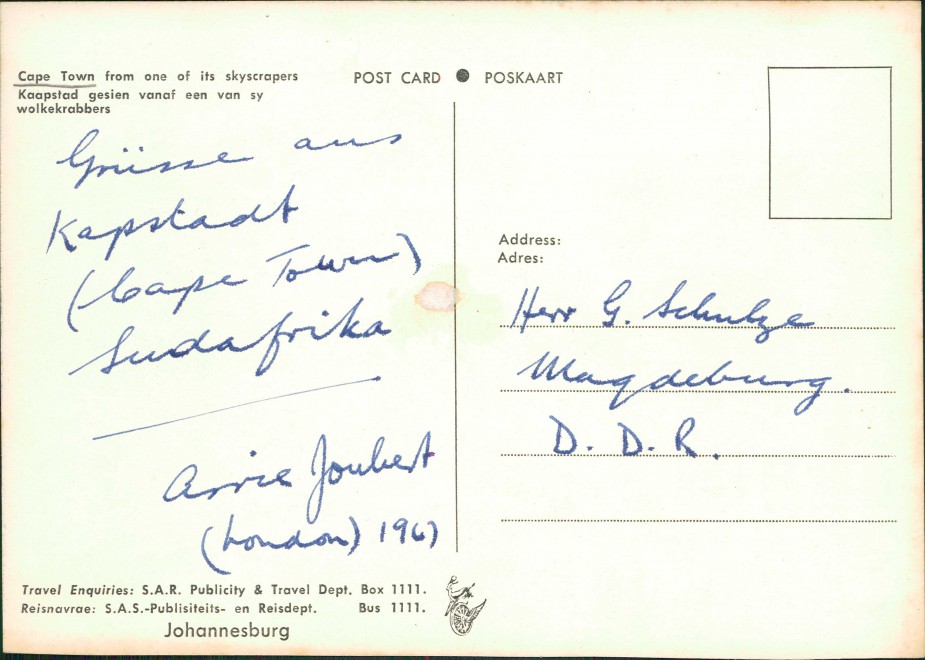 Cape Town from one of its skyscrapers
Kaapstad gesien vanaf een van sy
wolkekrabbers
POST CARD ● POSKAART
Grüsse aus
Kapstadt
(Cape Town)
Sudafrika
Arrie Joubert
(London) 1967
Address:
Adres:
Herr G. Schulze
Magdeburg.
D. D. R.
Travel Enquiries: S.A.R. Publicity & Travel Dept. Box 1111.
Reisnavrae: S.A.S.-Publisiteits- en Reisdept. Bus 1111.
Johannesburg